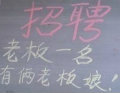 招聘
老板一名
有俩老板娘！